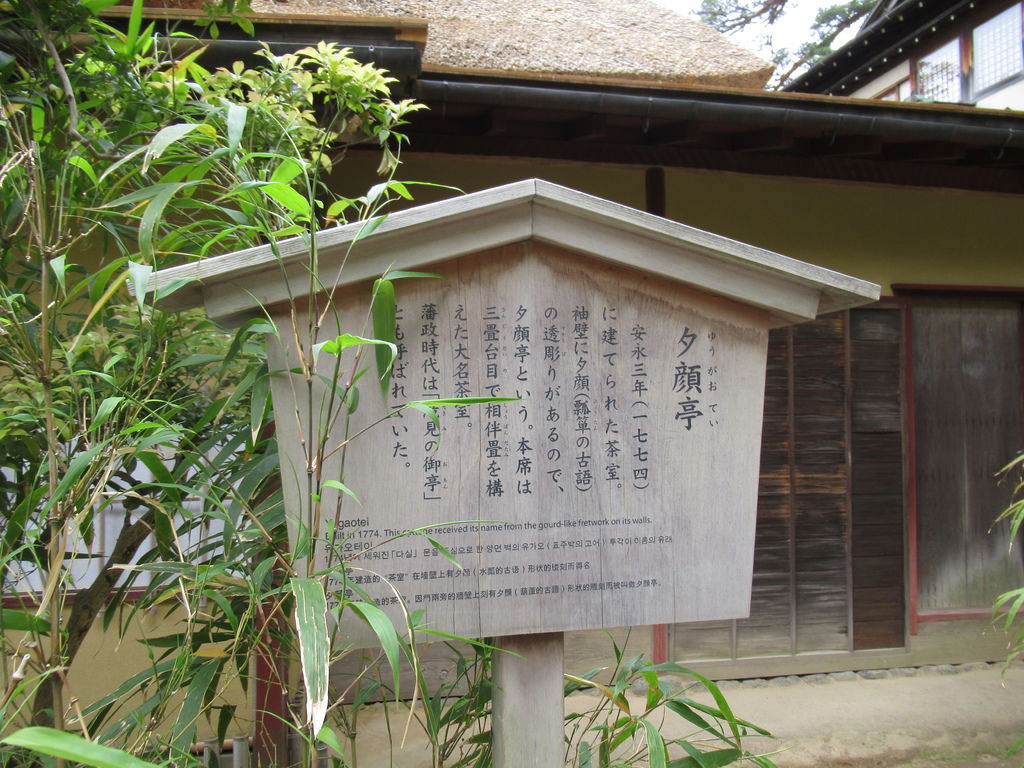 夕顔亭
ゆうがおてい
安永三年(一七七四)
に建てられた茶室。
袖壁に夕顔(瓢箪の古語)
の透彫りがあるので、
夕顔亭という。本席は
三畳台目で相伴畳を構
えた大名茶室。
藩政時代は「滝見の御亭」
とも呼ばれていた。
gaotei
Built in 1774. This received its name from the gourd-like fretwork on its walls.
유가오테이
세워진「다실」 문을 중심으로 한 양면 벽의 유가오 ( 표주박의 고어 ) 투각이 이름의 유래
年建造的“茶室”在墙壁上有夕颜（水瓢的古语）形状的镂刻而得名
造的茶室。因門兩旁的牆壁上刻有夕顏（葫蘆的古語）形狀的雕刻而被叫做夕顏亭。